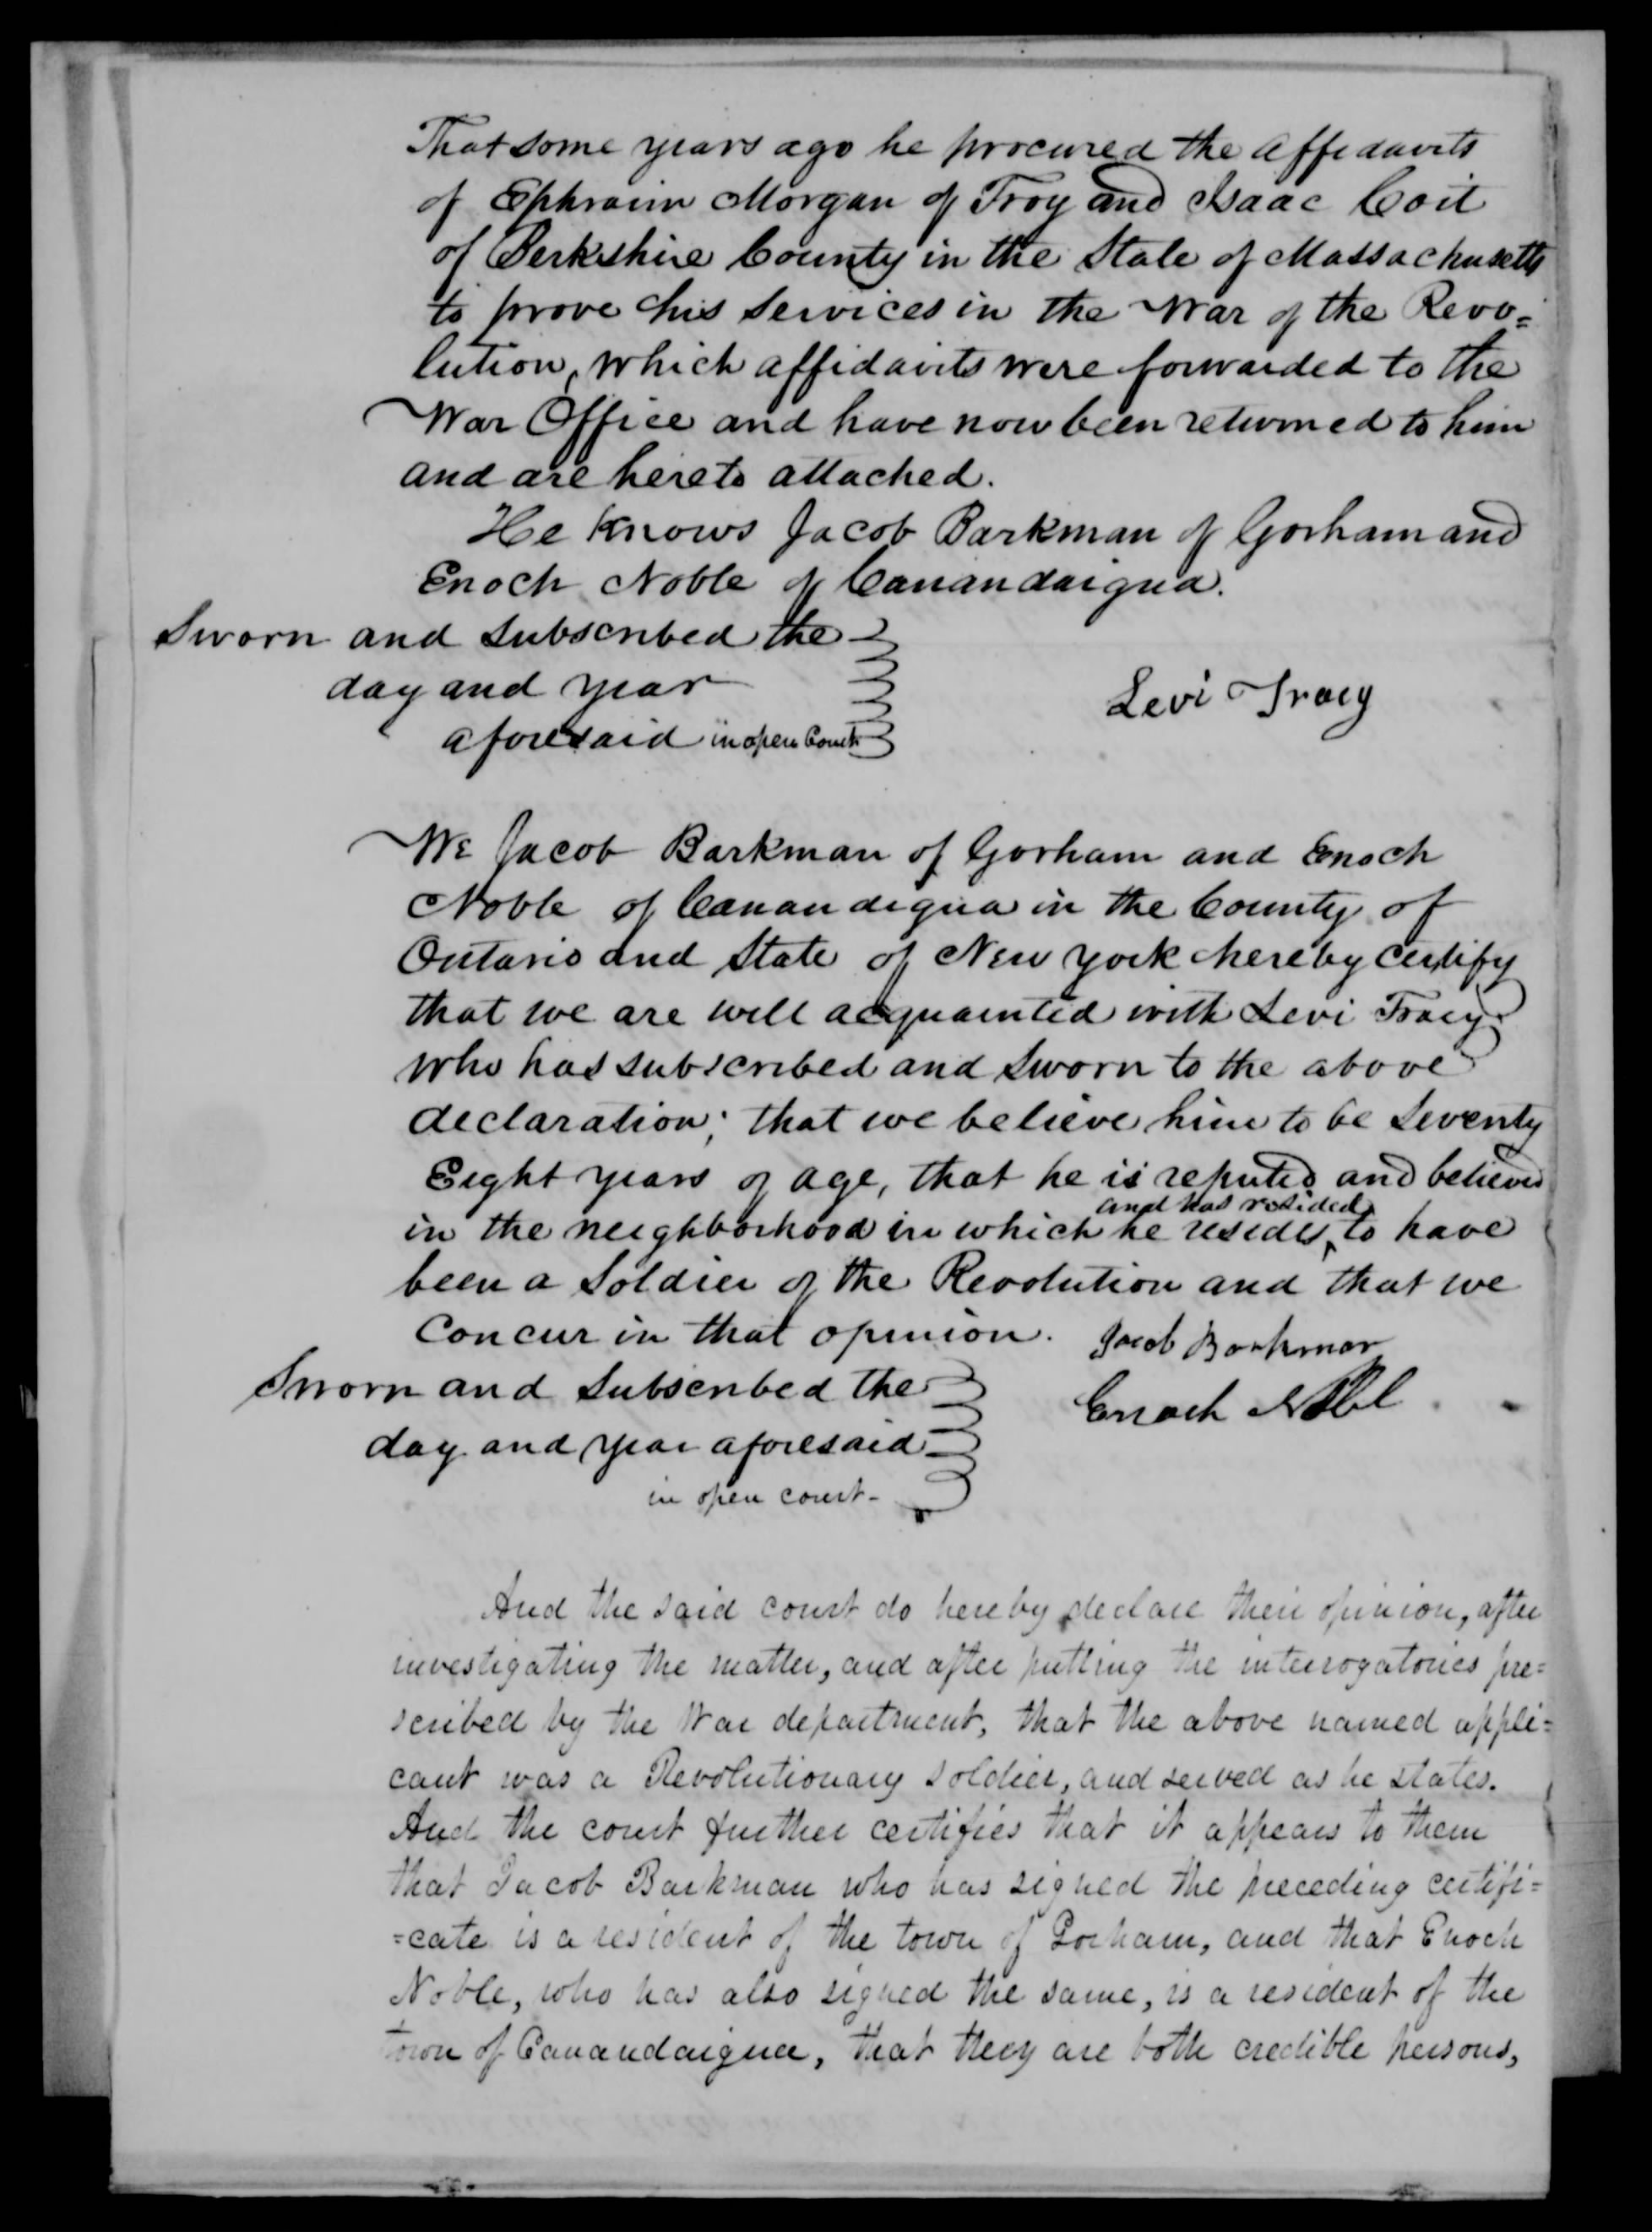 That some years ago he procured the affidavits
of Ephraim Morgan of Troy and Isaac Coit
of Berkshire County in the State of Massachusetts
to prove his services in the War of the Revo=
lution, which affidavits were forwarded to the
War Office and have now been returned to him
and are hereto attached.
He knows Jacob Barkman of Gorham and
Enoch Noble of Canandaigua.
Sworn and Subscribed the
day and year
aforesaid in open Court
Levi Tracy
We Jacob Barkman of Gorham and Enoch
Noble of Canandigua in the County of
Ontario and State of New York hereby certify
that we are well acquainted with Levi Tracy
who has subscribed and sworn to the above
declaration; that we believe him to be Seventy
Eight years of age, that he is reputed and believed
and has resided
in the neighborhood in which he resides, to have
been a Soldier of the Revolution and that we
Concur in that opinion.
Jacob Barkman
Sworn and Subscribed the
Enoch Noble
day and year aforesaid
in open court-
And the said court do hereby declare their opinion, after
investigating the matter, and after putting the interrogatories pre=
scribed by the War department, that the above named appli=
cant was a Revolutionary soldier, and served as he states.
And the court further certifies that it appears to them
that Jacob Barkman who has signed the preceding certifi=
=cate is a resident of the town of Gorham, and that Enoch
Noble, who has also signed the same, is a resident of the
town of Canandaigua, that they are both credible persons,